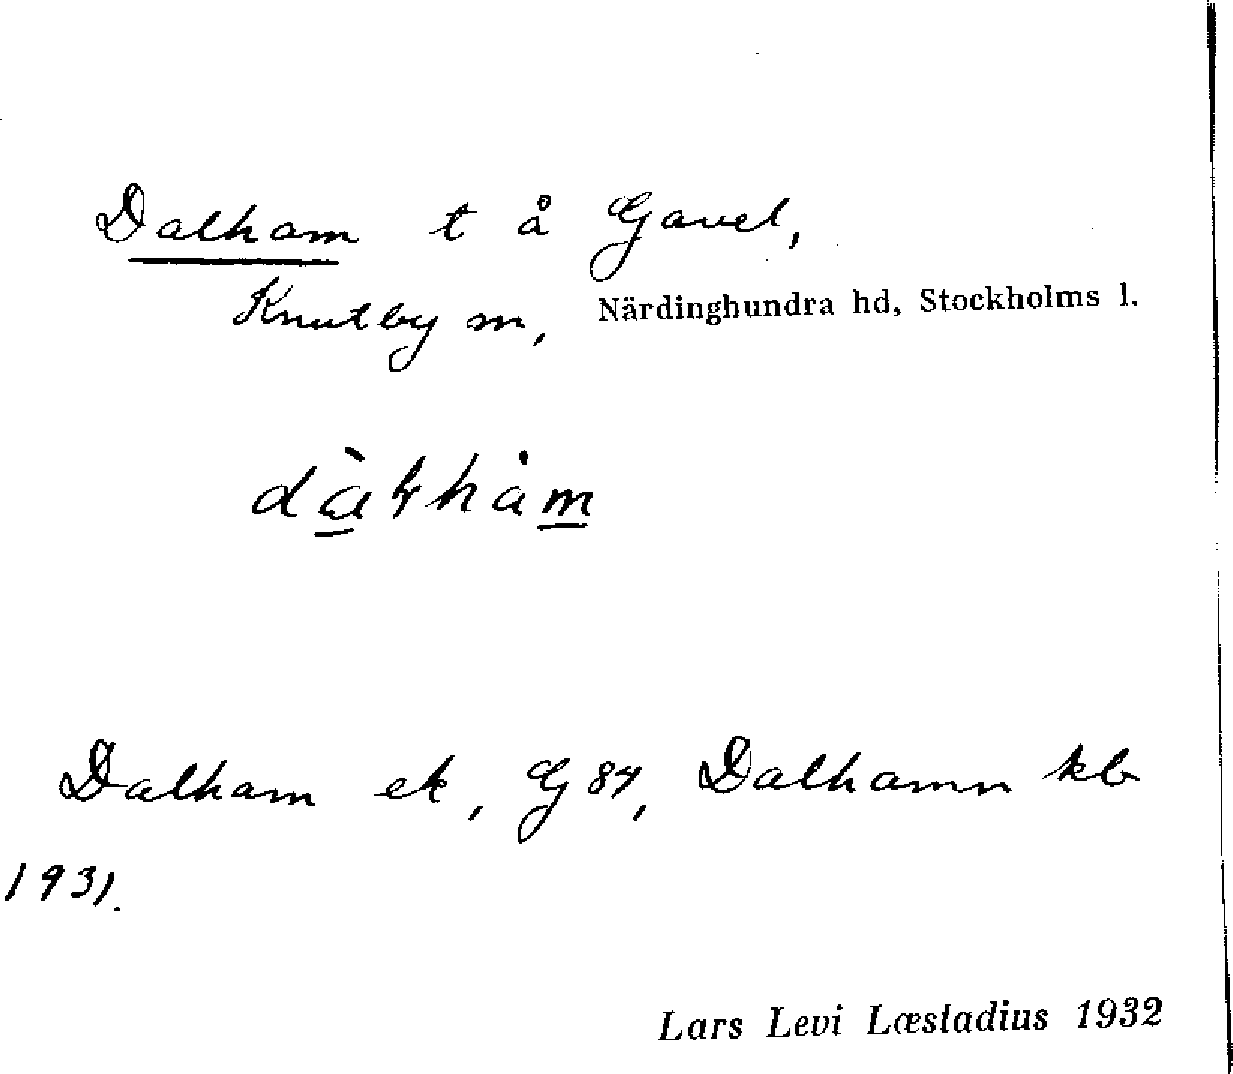 Dalham t å Gavel,
Knutby sn, Närdinghundra hd, Stockholms l.
Dalham ek, G 84, Dalhamn kb
1931.
Lars Levi Læstadius 1932